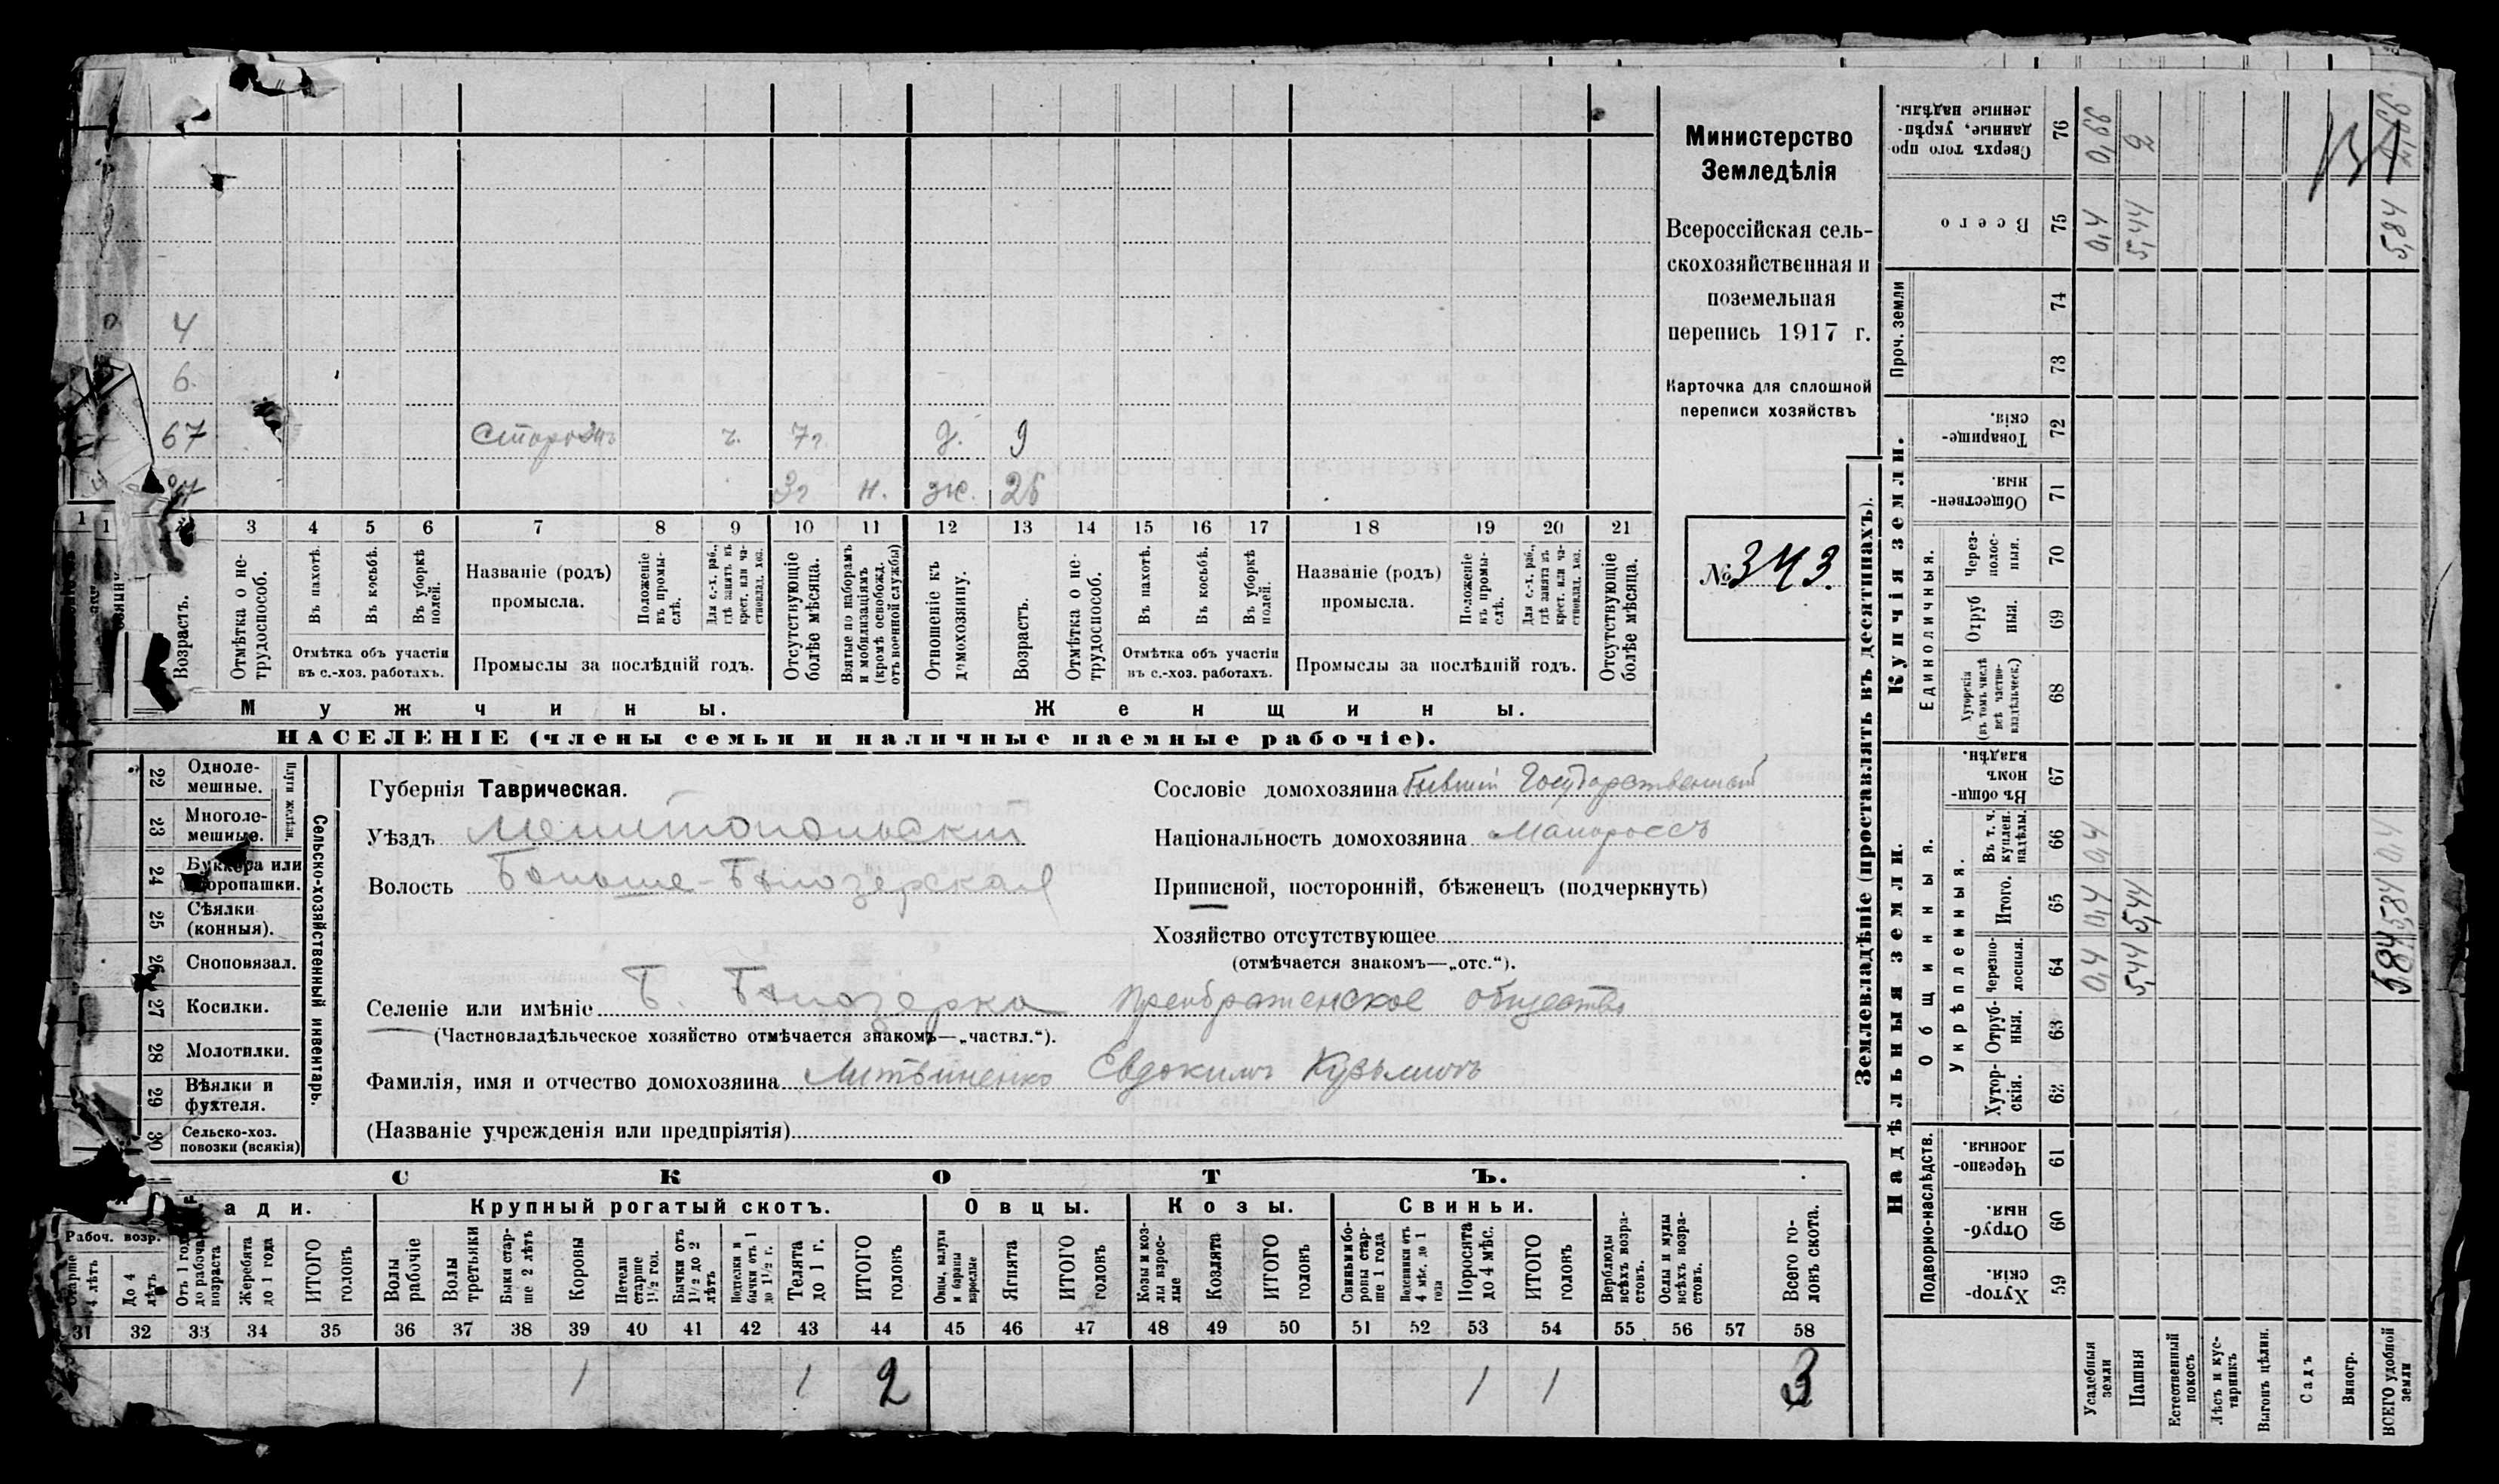 4
6.
67 Сторожъ г. 7г. д. 9
3г. н. ж. 26
1 1 3 4 5 6 7 8 9 10 11 12 13 14 15 16 17 18 19 20 21
Возрастъ.
Отмѣтка о не-
трудоспособ.
Въ пахотѣ.
Въ косьбѣ.
Въ уборкѣ
полей.
Отмѣтка объ участіи
въ с.-хоз. работахъ.
Названіе (родъ)
промысла.
Положеніе
въ промы-
слѣ.
Для с.-х. раб.,
гдѣ занятъ въ
крест. или ча-
стновлад. хоз.
Промыслы за послѣдній годъ.
Отсутствующіе
болѣе мѣсяца.
Взятые по наборамъ
и мобилизаціямъ
(кромѣ освобожд.
отъ военной службы)
Отношеніе къ
домохозяину.
Возрастъ.
Отмѣтка о не-
трудоспособ.
Въ пахотѣ.
Въ косьбѣ.
Въ уборкѣ
полей.
Отмѣтка объ участіи
въ с.-хоз. работахъ.
Названіе (родъ)
промысла.
Положеніе
въ промы-
слѣ.
Для с.-х. раб.,
гдѣ занята въ
крест. или ча-
стновлад. хоз.
Промыслы за послѣдній годъ.
Отсутствующіе
болѣе мѣсяца.
Мужчины.
Женщины.
НАСЕЛЕНІЕ (члены семьи и наличные наемные рабочіе).
Министерство
Земледѣлія
Всероссійская сель-
скохозяйственная и
поземельная
перепись 1917 г.
Карточка для сплошной
переписи хозяйствъ
№ 343.
22 Одноле-
мешные.
23 Многоле-
мешные.
Плуги желѣзн.
24 Буккера или
скоропашки.
25 Сѣялки
(конныя).
26 Сноповязал.
27 Косилки.
28 Молотилки.
29 Вѣялки и
фухтеля.
30 Сельско-хоз.
повозки (всякія)
Сельско-хозяйственный инвентарь.
Губернія Таврическая.
Уѣздъ Мелитопольскій
Волость Больше-Бѣлозерская
Сословіе домохозяина бывшій Государственный
Національность домохозяина Малороссъ
Приписной, посторонній, бѣженецъ (подчеркнуть)
Хозяйство отсутствующее
(отмѣчается знакомъ—„отс.“).
Селеніе или имѣніе Б. Бѣлозерка Преображенское общество
(Частновладѣльческое хозяйство отмѣчается знакомъ—„частвл.“).
Фамилія, имя и отчество домохозяина Литвиненко Евдокимъ Кузьмичъ
(Названіе учрежденія или предпріятія)
СКОТЪ.
ади.
Крупный рогатый скотъ.
Овцы.
Козы.
Свиньи.
Рабоч. возр.
Старше
4 лѣтъ
До 4
лѣтъ
Отъ 1 года
до рабочаго
возраста
Жеребята
до 1 года
ИТОГО
головъ
Волы
рабочіе
Волы
третьяки
Быки стар-
ше 2 лѣтъ
Коровы
Нетели
старше
1½ год.
Бычки отъ
1½ до 2
лѣтъ
Подтелки и
бычки отъ 1
до 1½ г.
Телята
до 1 г.
ИТОГО
головъ
Овцы, валухи
и бараны
взрослые
Ягнята
ИТОГО
головъ
Козы и коз-
лы взрос-
лые
Козлята
ИТОГО
головъ
Свиньи бо-
ровы стар-
ше 1 года
Подсвинки отъ
4 мѣс. до 1
года
Поросята
до 4 мѣс.
ИТОГО
головъ
Верблюды
всѣхъ возра-
стовъ.
Ослы и мулы
всѣхъ возра-
стовъ.
Всего го-
ловъ скота.
31 32 33 34 35 36 37 38 39 40 41 42 43 44 45 46 47 48 49 50 51 52 53 54 55 56 57 58
1 1 2 1 1 3
Землевладѣніе (проставлять въ десятинахъ).
Надѣльныя земли.
Купчія земли.
Проч. земли
Подворно-наслѣдств.
Общинныя.
Укрѣпленныя.
Единоличныя.
Хутор-
скія.
59
Отруб-
ныя.
60
Черезпо-
лосныя.
61
Хутор-
скія.
62
Отруб-
ныя.
63
Черезпо-
лосныя.
64 0,4 5,44 5,84
Итого.
65 0,4 5,44 5,84
Въ т. ч.
куплен.
надѣлы.
66 0,4 0,4
Въ общи-
номъ
владѣн.
67
Хуторскія
(въ томъ числѣ
всѣ частно-
владѣльческ.)
68
Отруб
ныя.
69
Через-
полос-
ныя.
70
Обществен-
ныя.
71
Товарище-
скія.
72
73
74
Всего
75 0,4 5,44 5,84
Сверхъ того про
данные, укрѣп-
ленные надѣлы.
76 0,66 2 2,66
Усадебныя
земли
Пашня
Естественный
покосъ
Лѣсъ и кус-
тарникъ
Выгонъ цѣлин.
Садъ
Виногр.
ВСЕГО удобной
земли